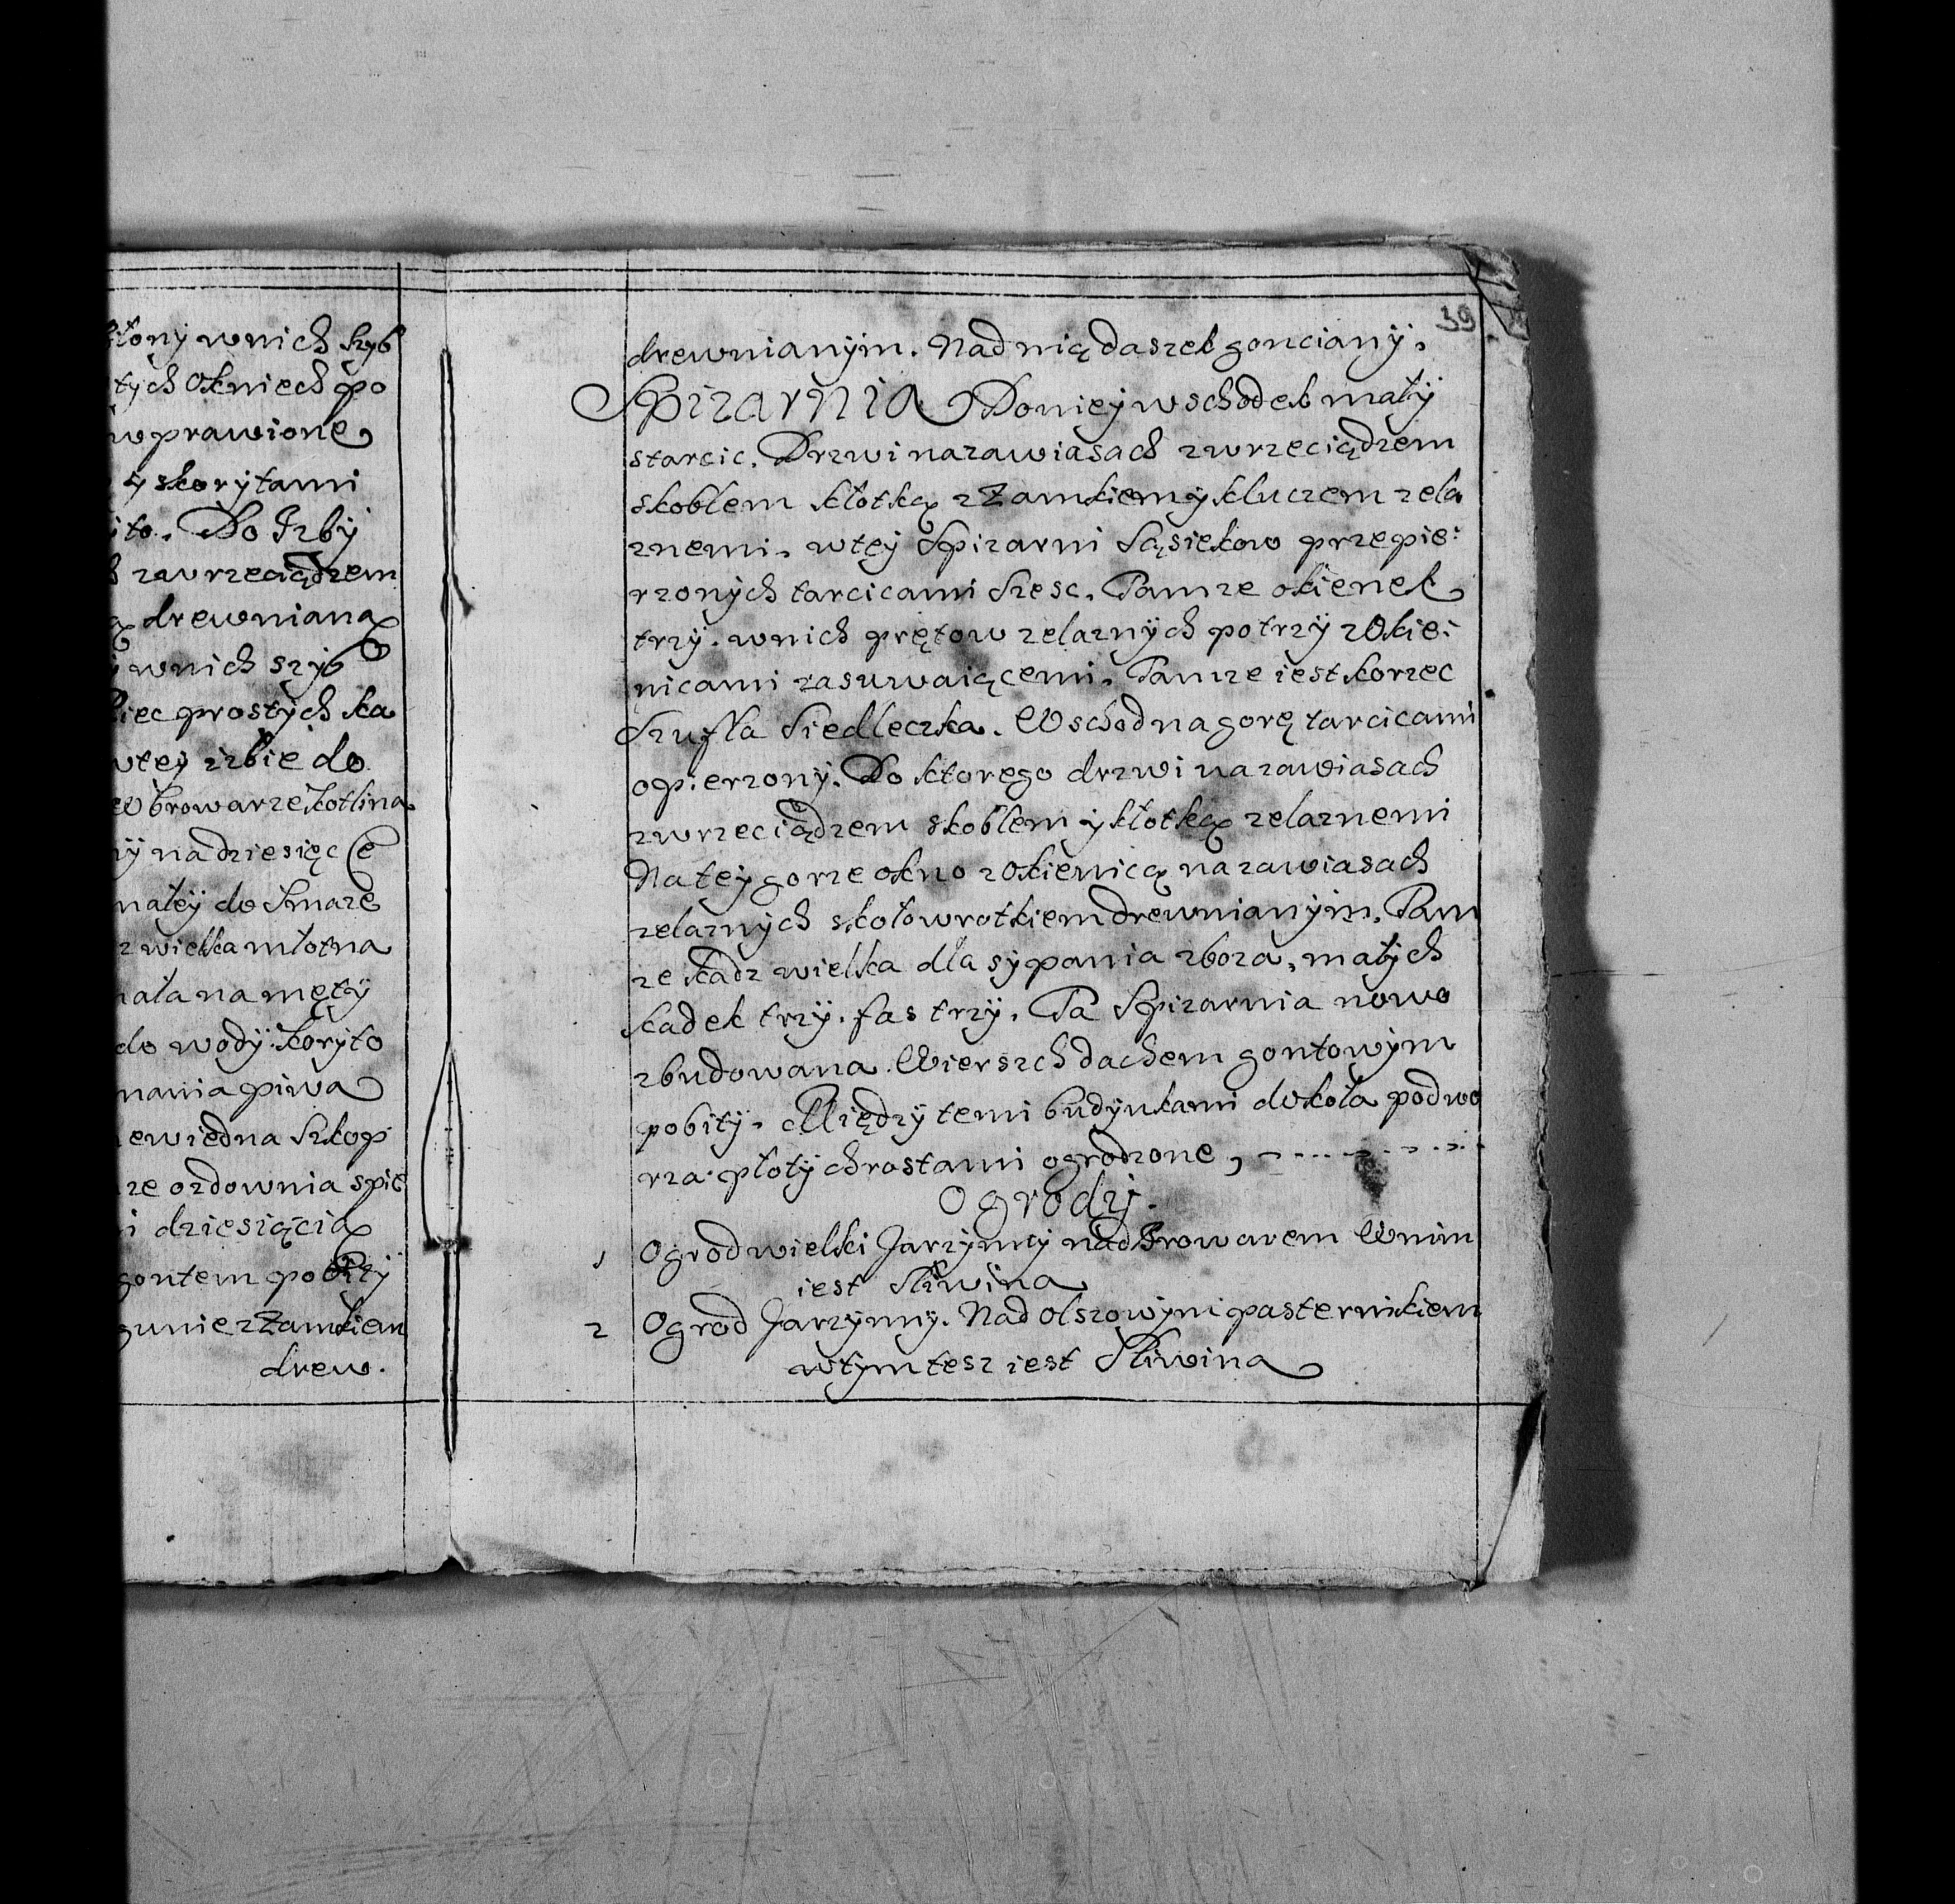 tony w nich szyb
tych Okniech po
wprawione
y skorytami
ito. Do Izby
zawrzeciądzem
drewnianą
w nich szyb
liec prostych ka
wtey izbie do
w browarze kotlina
ny nadziesięc
małey do
z wielka młotna
nała na męty
do wody koryto
nania piwa
iewiedna szkop
ze ozdownia spie
i dziesiącią
gontem pobity
gunie z Zamkiem
drew.
39
drewnianym. Nad nią daszek gonciany.
Spizarnia Do niey wschodek mały
starcic. Drzwi na zawiasach zwrzeciądzem
skoblem kłotką z Zamkiem y kluczem zela
znemi. wtey Spizarni Sąsiekow przepie:
rzonych tarcicami szesc. Tamze okienek
trzy. w nich prętow zelaznych potrzy z Okie:
nicami zasuwaiącemi. Tamze iest korzec
Szufla Siedleczka. Wschod na gorę tarcicami
opierzony. Do ktorego drzwi na zawiasach
zwrzeciądzem skoblem y kłotką zelaznemi
Na tey gorze okno z Okienicą na zawiasach
zelaznych skołowrotkiem drewnianym. Tam
ze kadz wielka dla sypania zboza, małych
kadek trzy. fas trzy. Ta Spizarnia nowo
zbudowana. Wierszch dachem gontowym
pobity. Między temi budynkami dokoła podwo
rza płoty chrostami ogrodzone,
Ogrody.
1 Ogrod wielki Jarzynny nad Browarem Wnim
iest Sliwina
2 Ogrod Jarzynny. Nad Olszowym pasternikiem
wtym tesz iest Sliwina